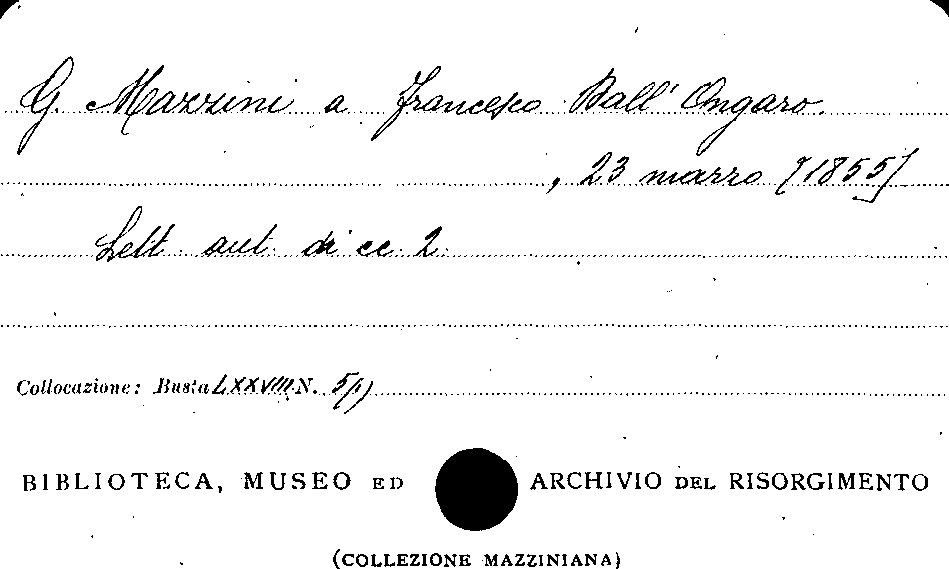 G. Mazzini a Francesco Dall' Ongaro.
, 23 marzo [1855]
Lett. aut. di cc. 2.
Collocazione: Busta LXXVIII N. 5(1)
BIBLIOTECA, MUSEO ED ARCHIVIO DEL RISORGIMENTO
(COLLEZIONE MAZZINIANA)